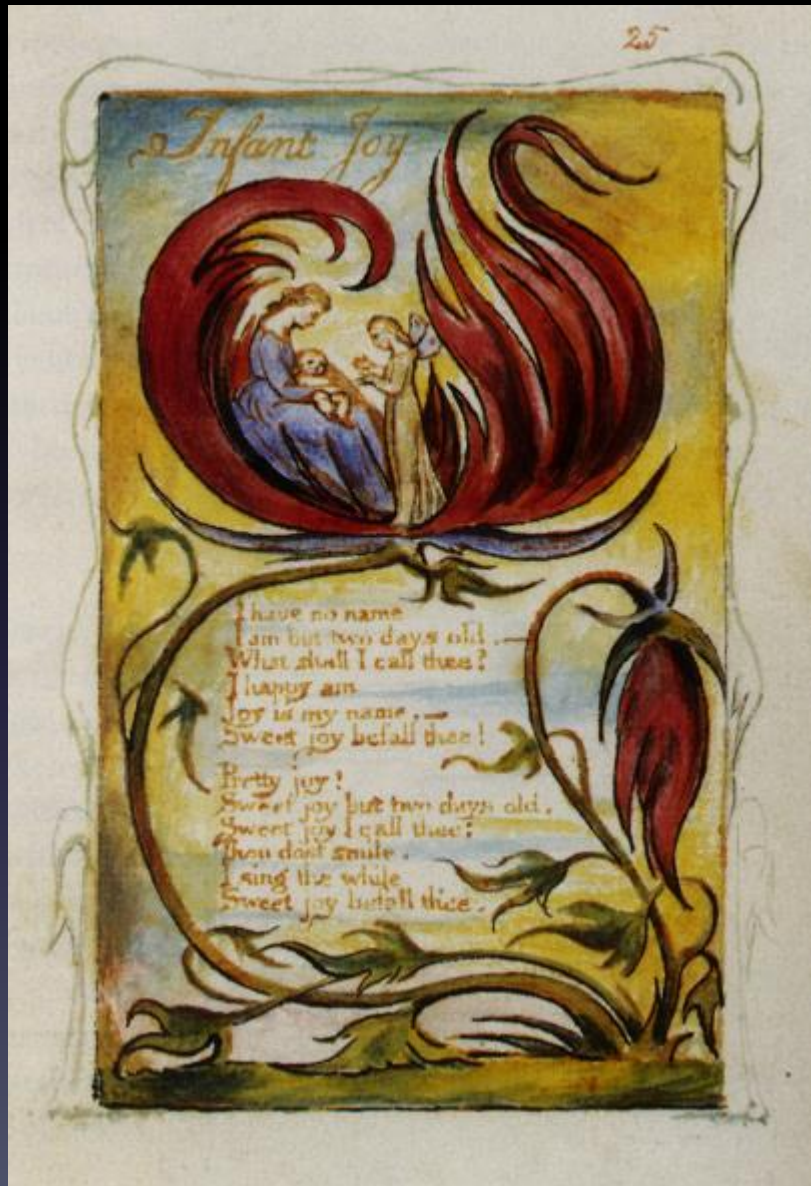 25
Infant Joy
I have no name
I am but two days old.—
What shall I call thee?
I happy am
Joy is my name,—
Sweet joy befall thee!
Pretty joy!
Sweet joy but two days old.
Sweet joy I call thee:
Thou dost smile.
I sing the while
Sweet joy befall thee.